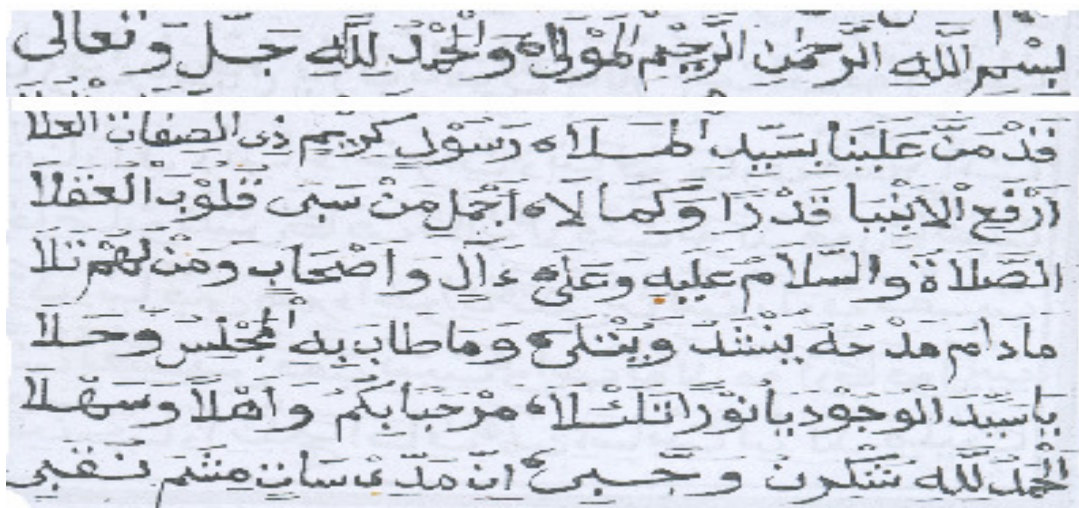 بِسْمِ اللّٰهِ الرَّحْمٰنِ الرَّحِيْمِ الْمَوْلٰى ه وَالْحَمْدُ لِلّٰهِ جَلَّ وَتَعَالٰى
قَدْ مَنَّ عَلَيْنَا بِسَيِّدِ الْمَلَا ه رَسُوْلٍ كَرِيْمٍ ذِى الصِّفَاتِ الْعُلَا
اَرْفَعِ الْاَنْبِيَا قَدْرًا وَكَمَالَا ه اَجْمَلِ مَنْ سَبَى قُلُوْبَ الْعُقَلَا
الصَّلَاةُ وَالسَّلَامُ عَلَيْهِ وَعَلٰى ءَالٍ وَاَصْحَابٍ وَمَنْ لَهُمْ تَلَا
مَادَامَ مَدْحُهُ يُنْشَدُ وَيُتْلٰى ه وَمَا طَابَ بِهِ الْمَجْلِسُ وَحَلَا
يَا سَيِّدَ الْوُجُوْدِ يَا نُوْرًا تَلَئْلَا ه مَرْحَبًا بِكُمْ وَاَهْلًا وَسَهْلَا
الْحَمْدُ لِلّٰهِ شُكْرِنْ وَ اِنَّ